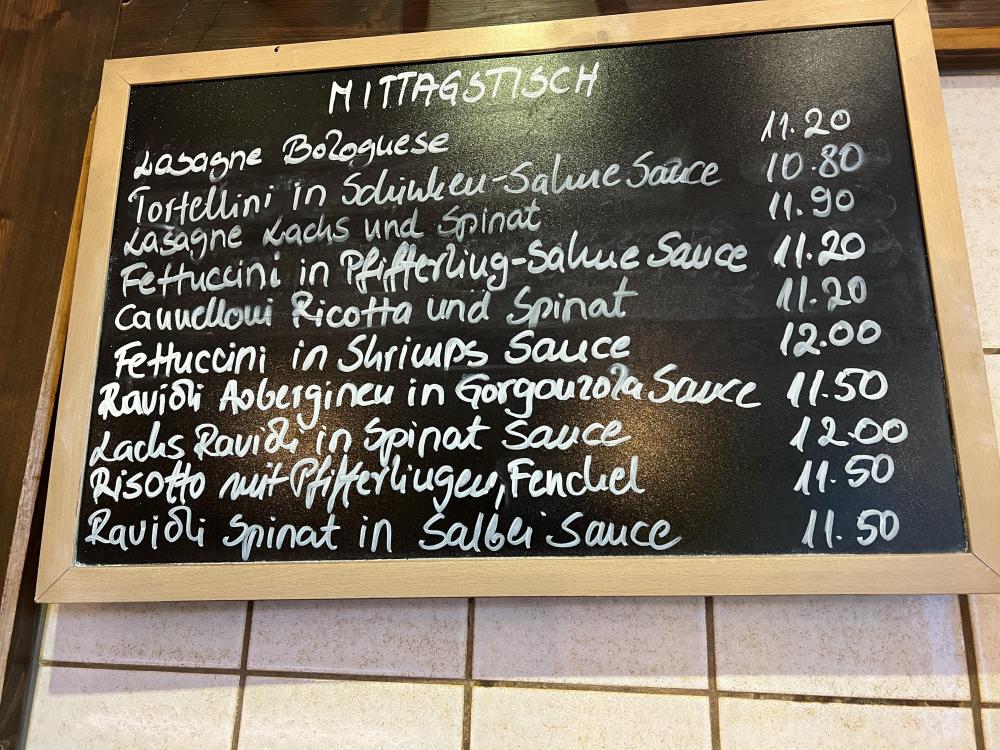 MITTAGSTISCH
Lasagne Bolognese 11.20
Tortellini in Schinken-Sahne Sauce 10.80
Lasagne Lachs und Spinat 11.90
Fettuccini in Pfifferling-Sahne Sauce 11.20
Cannelloni Ricotta und Spinat 11.20
Fettuccini in Shrimps Sauce 12.00
Ravioli Auberginen in Gorgonzola Sauce 11.50
Lachs Ravioli in Spinat Sauce 12.00
Risotto mit Pfifferlingen, Fenchel 11.50
Ravioli Spinat in Salbei Sauce 11.50